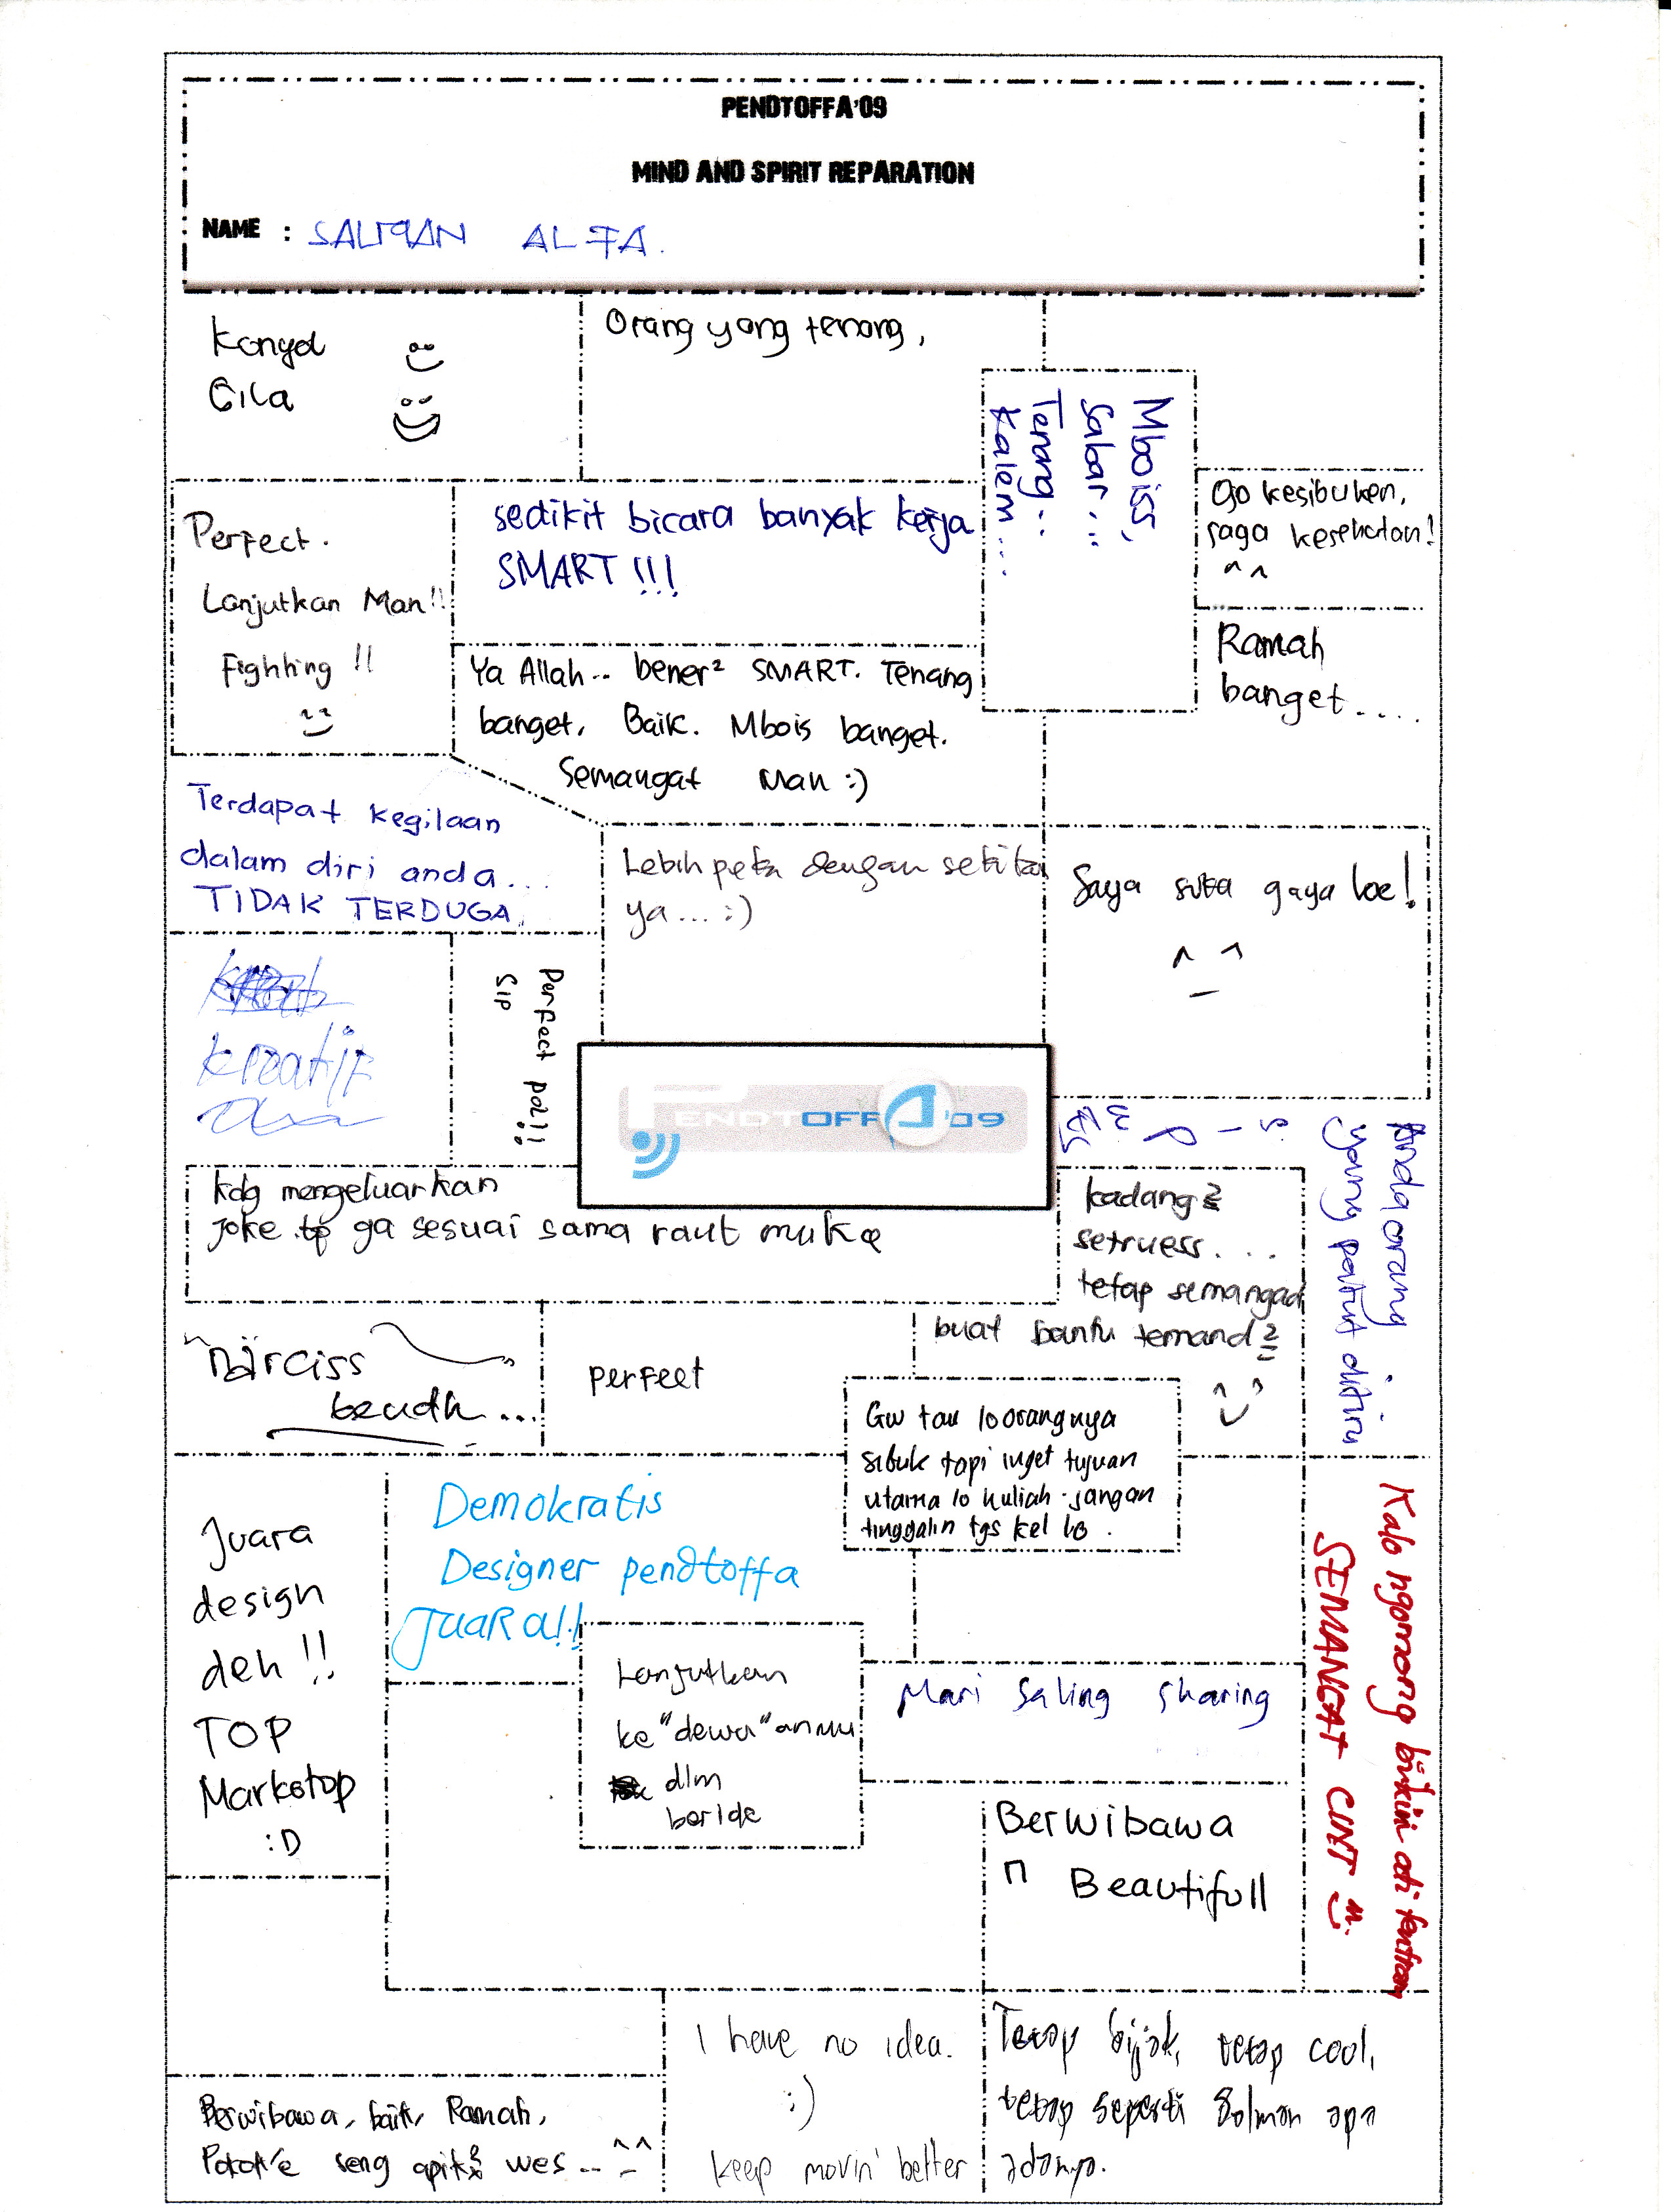 PENDTOFFA'09
MIND AND SPIRIT REPARATION
NAME : SALMAN ALFA.
Konyol
Gila
Orang yang tenang,
Mboiss,
Sabar...
Tenang...
Kalem....
Jgo kesibukan,
jaga kesehatan!
^^
Perfect.
Lanjutkan Man!!
Fighting !!
sedikit bicara banyak kerja
SMART !!!
Ramah
banget....
Ya Allah.. bener² SMART. Tenang
banget. Baik. Mbois banget.
Semangat Man :)
Terdapat kegilaan
dalam diri anda...
TIDAK TERDUGA.
Lebih peka dengan sekitar
ya... :)
Saya suka gaya loe!
^ ^
kreatif
Perfect pol!!
Sip
PENDTOFFA'09
Anda orang
yang patut ditiru
Kdg mengeluarkan
joke tp ga sesuai sama raut muka
kadang2
setruess....
tetap semangad
buat bantu temand2
narciss
beudh...
perfect
Gw tau lo orangnya
sibuk tapi inget tujuan
utama lo kuliah. jangan
tinggalin tgs kel lo.
Juara
design
deh !!
TOP
Markotop
:D
Demokratis
Designer pendtoffa
JUARa!!
Kalo ngomong bikin ati tentram
SEMANGAT CINT
Lanjutkan
ke"dewa"anmu
dlm
beride
Mari Saling sharing
Berwibawa
n Beautifull
I have no idea.
:)
keep movin' better
Tetap bijak, tetap cool,
tetap seperti Salman apa
adanya.
Berwibawa, baik, Ramah,
Pokok'e seng apik2 wes.. ^^